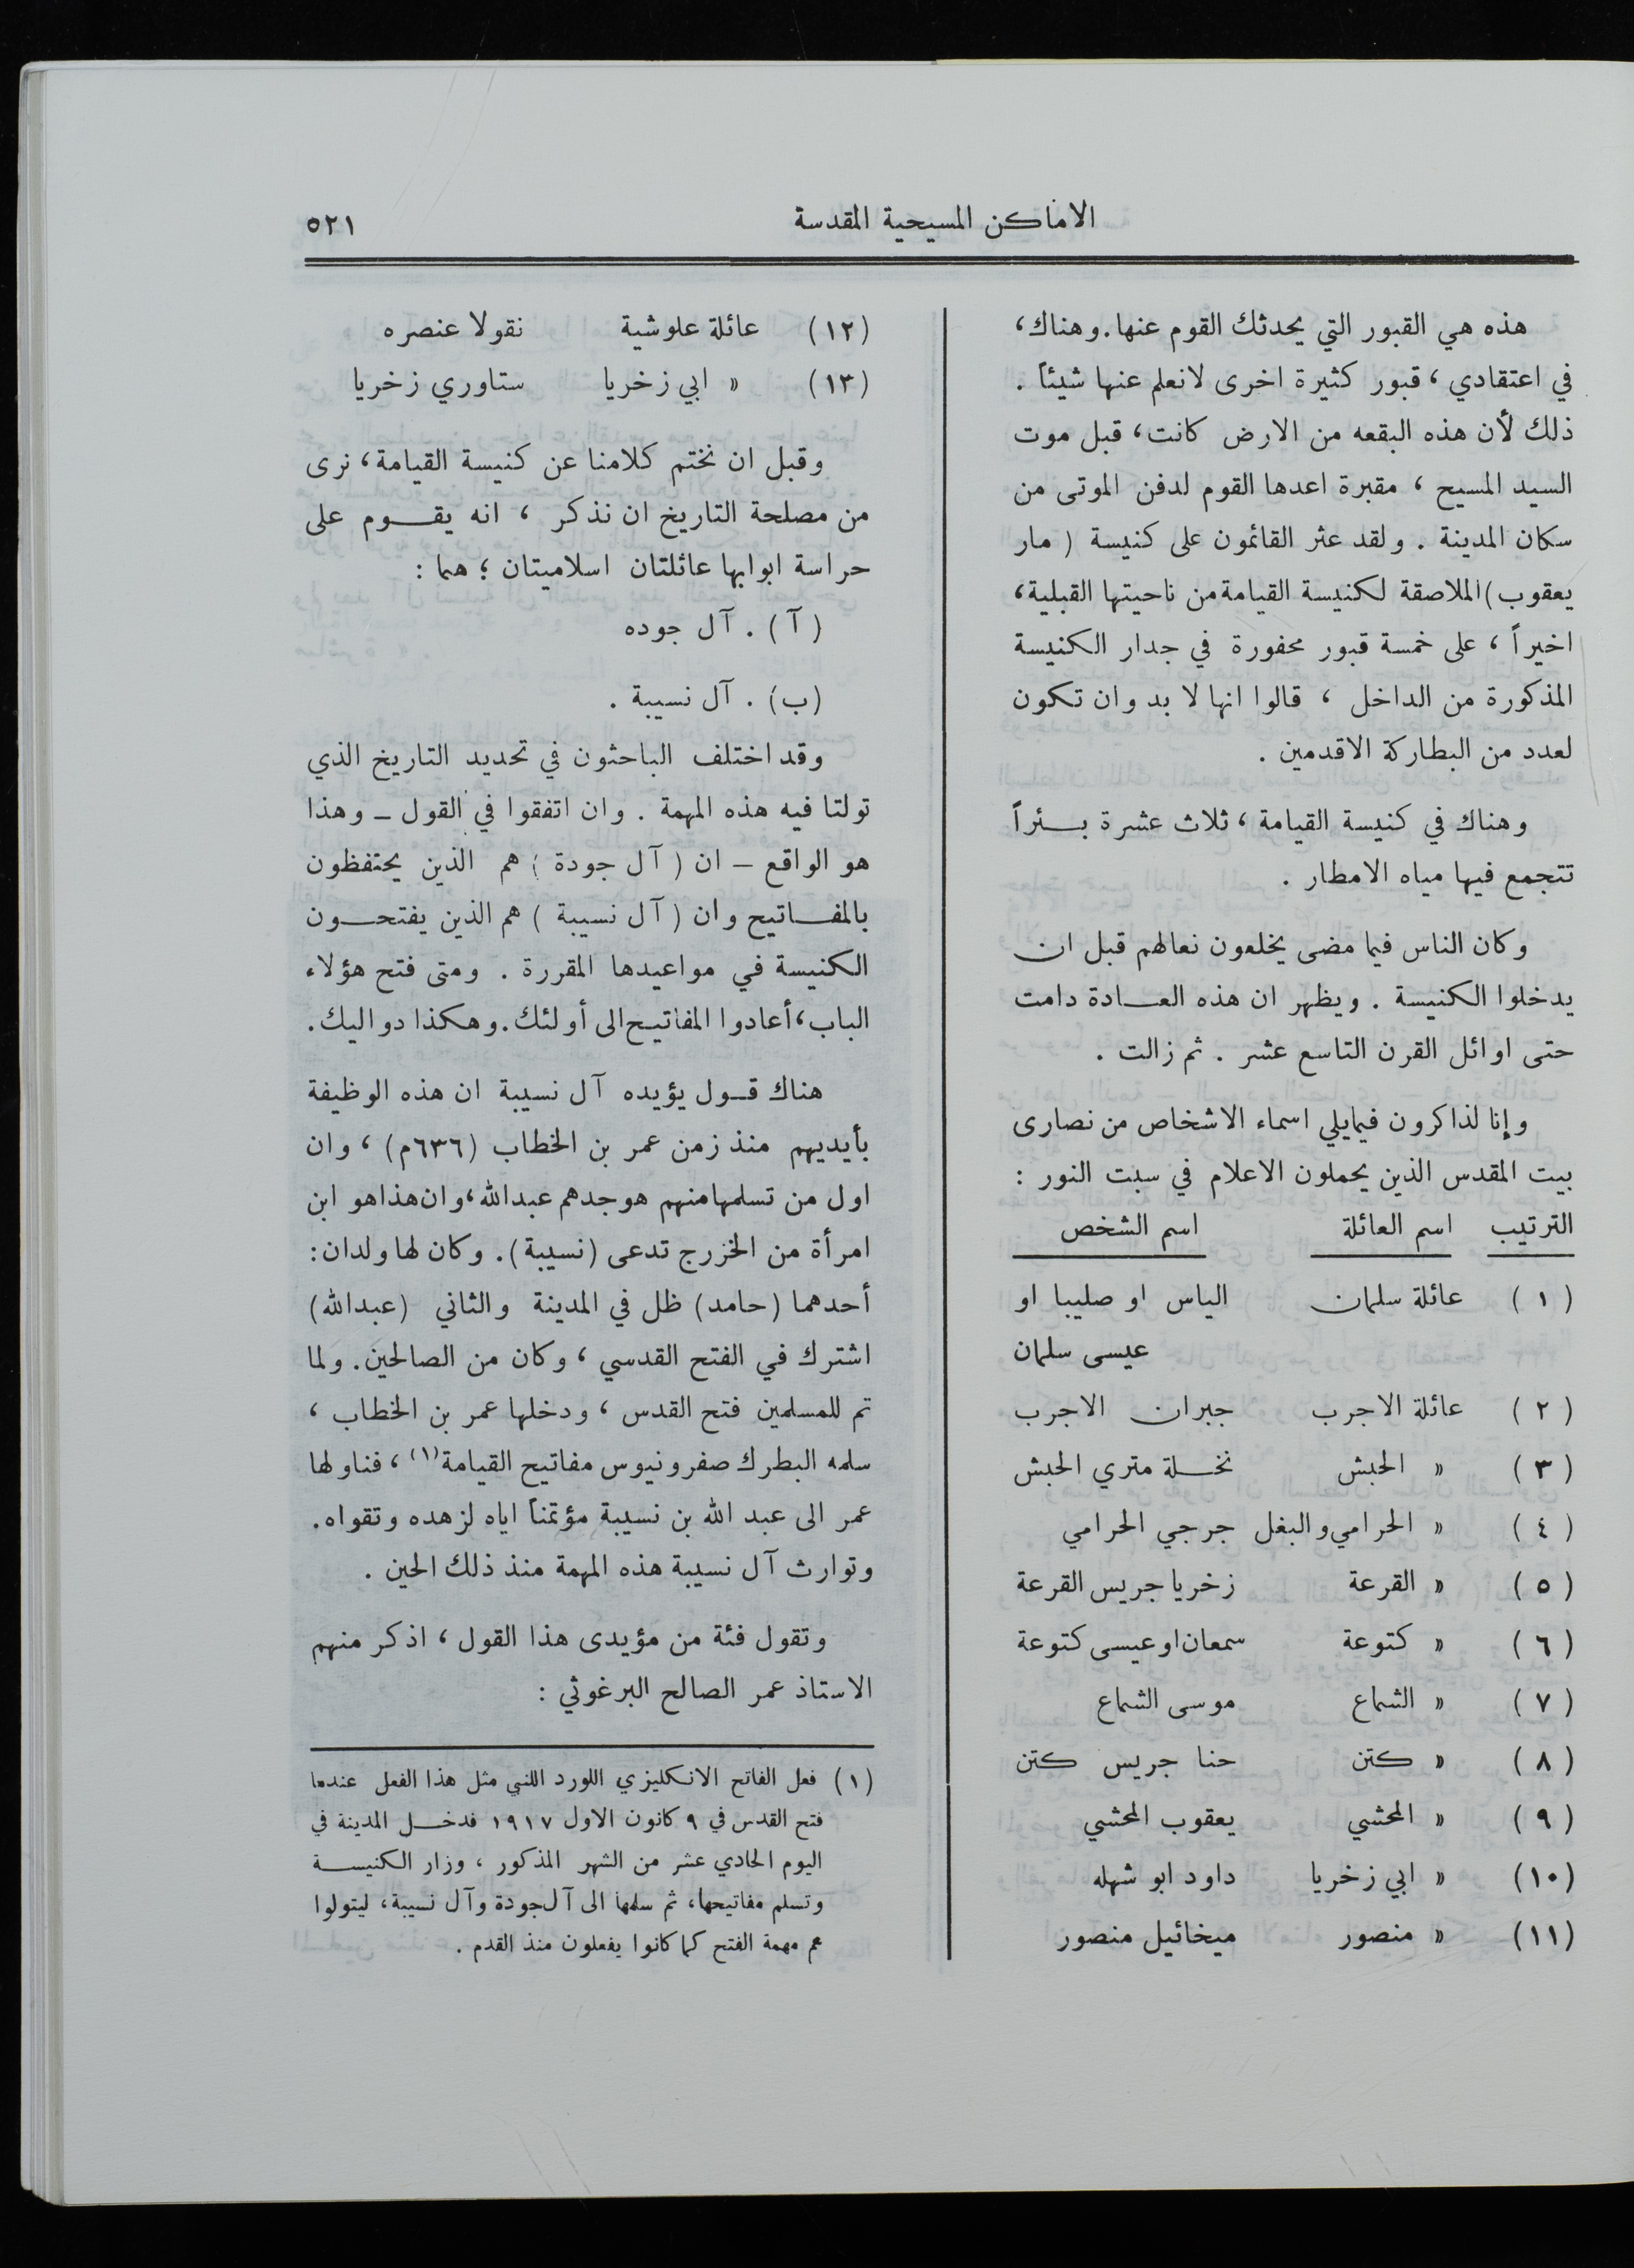 الاماكن المسيحية المقدسة
٥٢١
هذه هي القبور التي يحدثك القوم عنها. وهناك،
في اعتقادي، قبور كثيرة اخرى لانعلم عنها شيئاً .
ذلك لأن هذه البقعه من الارض كانت، قبل موت
السيد المسيح ، مقبرة اعدها القوم لدفن الموتى من
سكان المدينة . ولقد عثر القائمون على كنيسة ( مار
يعقوب) الملاصقة لكنيسة القيامة من ناحيتها القبلية،
اخيراً ، على خمسة قبور محفورة في جدار الكنيسة
المذكورة من الداخل ، قالوا انها لا بد وان تكون
لعدد من البطاركة الاقدمين .
وهناك في كنيسة القيامة ، ثلاث عشرة بئراً
تتجمع فيها مياه الامطار .
وكان الناس فيما مضى يخلعون نعالهم قبل ان
يدخلوا الكنيسة . ويظهر ان هذه العادة دامت
حتى اوائل القرن التاسع عشر . ثم زالت .
وإنا لذاكرون فيمايلي اسماء الاشخاص من نصارى
بيت المقدس الذين يحملون الاعلام في سبت النور :
الترتيب اسم العائلة اسم الشخص
( ١ ) عائلة سلمان الياس او صليبا او
عيسى سلمان
( ٢ ) عائلة الاجرب جبران الاجرب
( ٣ ) » الحبش نخلة متري الحبش
( ٤ ) » الحرامي والبغل جرجي الحرامي
( ٥ ) » القرعة زخريا جريس القرعة
( ٦ ) » كتوعة سمعان او عيسى كتوعة
( ٧ ) » الشماع موسى الشماع
( ٨ ) » كتن حنا جريس كتن
( ٩ ) » المحشي يعقوب المحشي
(١٠) » ابي زخريا داود ابو شهله
(١١) » منصور ميخائيل منصور
(١٢) عائلة علوشية نقولا عنصره
(١٣) » ابي زخريا ستاوري زخريا
وقبل ان نختم كلامنا عن كنيسة القيامة، نرى
من مصلحة التاريخ ان نذكر ، انه يقوم على
حراسة ابوابها عائلتان اسلاميتان ؛ هما :
( آ ) . آل جوده
(ب) . آل نسيبة .
وقد اختلف الباحثون في تحديد التاريخ الذي
تولتا فيه هذه المهمة . وان اتفقوا في القول – وهذا
هو الواقع – ان ( آل جودة ) هم الذين يحتفظون
بالمفاتيح وان ( آل نسيبة ) هم الذين يفتحون
الكنيسة في مواعيدها المقررة . ومتى فتح هؤلاء
الباب، أعادوا المفاتيح الى أولئك. وهكذا دواليك.
هناك قول يؤيده آل نسيبة ان هذه الوظيفة
بأيديهم منذ زمن عمر بن الخطاب (٦٣٦م) ، وان
اول من تسلمها منهم هو جدهم عبدالله، وان هذا هو ابن
امرأة من الخزرج تدعى (نسيبة). وكان لها ولدان:
أحدهما (حامد) ظل في المدينة والثاني (عبدالله)
اشترك في الفتح القدسي ، وكان من الصالحين. ولما
تم للمسلمين فتح القدس ، ودخلها عمر بن الخطاب ،
سلمه البطرك صفرونيوس مفاتيح القيامة(١) ، فناولها
عمر الى عبد الله بن نسيبة مؤتمناً اياه لزهده وتقواه.
وتوارث آل نسيبة هذه المهمة منذ ذلك الحين .
وتقول فئة من مؤيدى هذا القول ، اذكر منهم
الاستاذ عمر الصالح البرغوثي :
(١) فعل الفاتح الانكليزي اللورد اللنبي مثل هذا الفعل عندما
فتح القدس في ٩ كانون الاول ١٩١٧ فدخل المدينة في
اليوم الحادي عشر من الشهر المذكور ، وزار الكنيسة
وتسلم مفاتيحها، ثم سلمها الى آل جودة وآل نسيبة، ليتولوا
هم مهمة الفتح كما كانوا يفعلون منذ القدم .